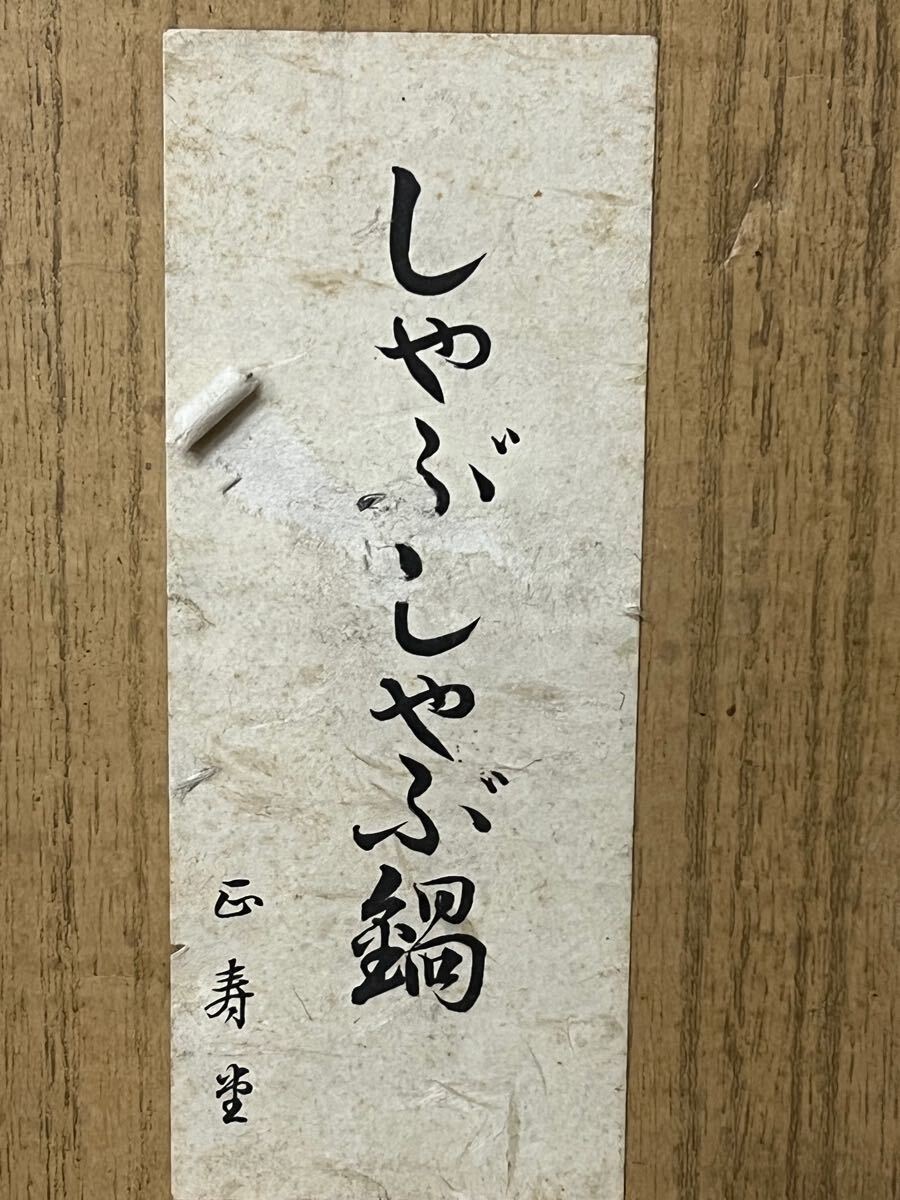 しやぶしやぶ鍋
正寿堂